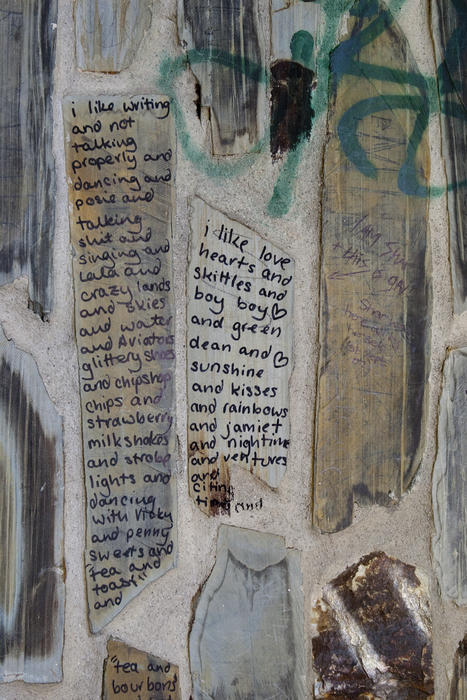 i like writing
and not
talking
properly and
dancing and
posie and
talking
shit and
singing and
Lala and
crazy lands
and skies
and water
and Aviators
glittery shoes
and chipshop
chips and
strawberry
milkshakes
and strobe
lights and
dancing
with Vicky
and penny
sweets and
"tea and
toast"
and
"tea and
bourbons"
i like love
hearts and
skittles and
boy boy♡
and green
dean and♡
sunshine
and kisses
and rainbows
and jamiet
and nightime
and ventures
and
time and